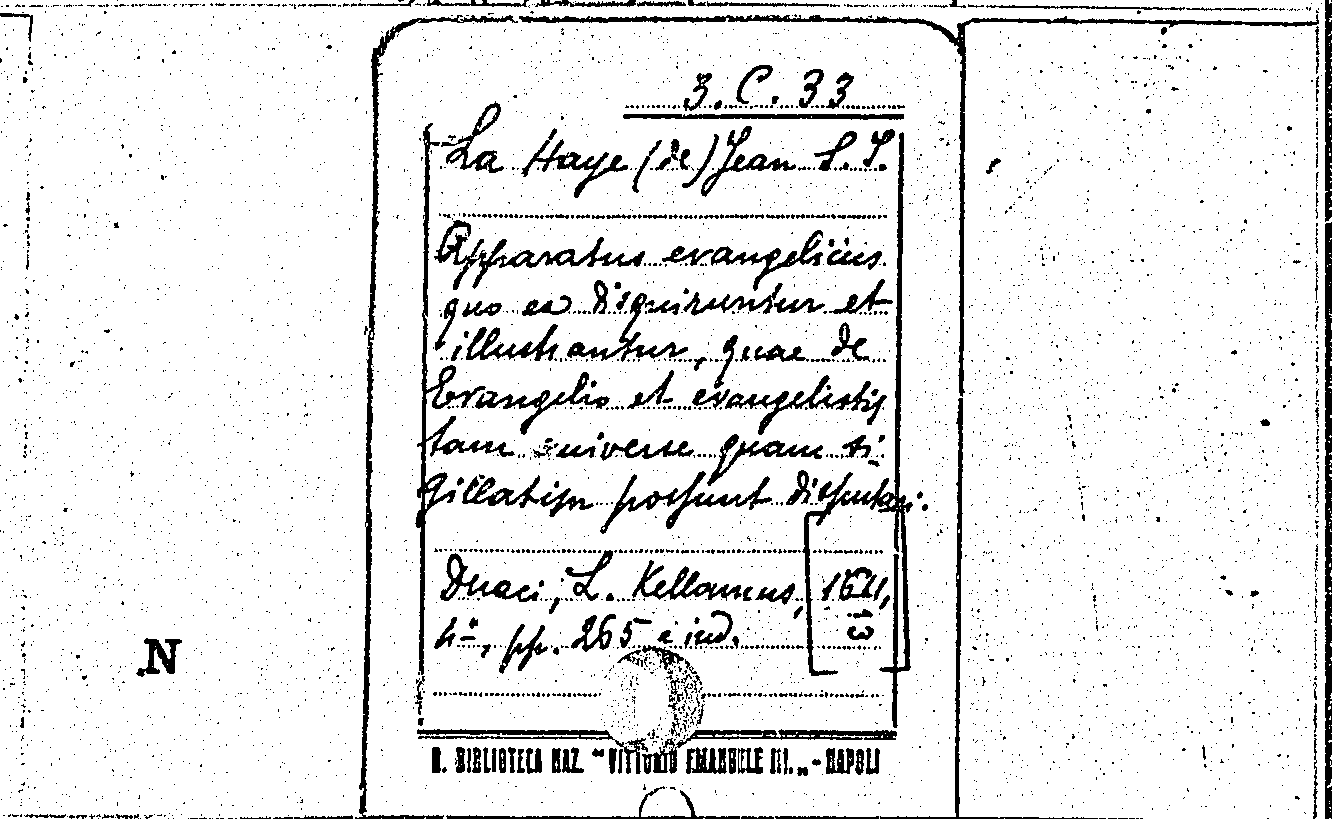 3. C. 33
La Haye (de) Jean S. I.
Apparatus evangelicus
quo ea disquiruntur et
illustrantur, quae de
Evangelio et evangelistis
tam universe quam si
gillatim possunt disputari.
Duaci, L. Kellamus, 1611,
4º, pp. 265 e ind.
N
R. BIBLIOTECA NAZ. "VITTORIO EMANUELE III." - NAPOLI